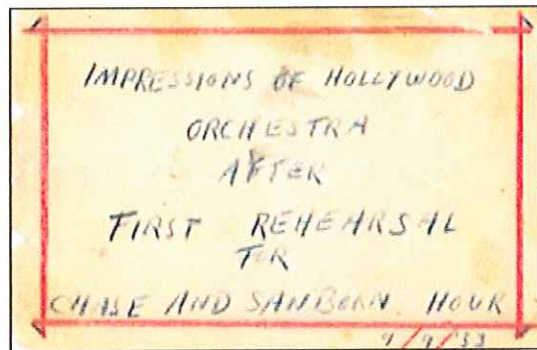 IMPRESSIONS OF HOLLYWOOD
ORCHESTRA
AFTER
FIRST REHEARSAL
FOR
CHASE AND SANBORN HOUR
9/9/33